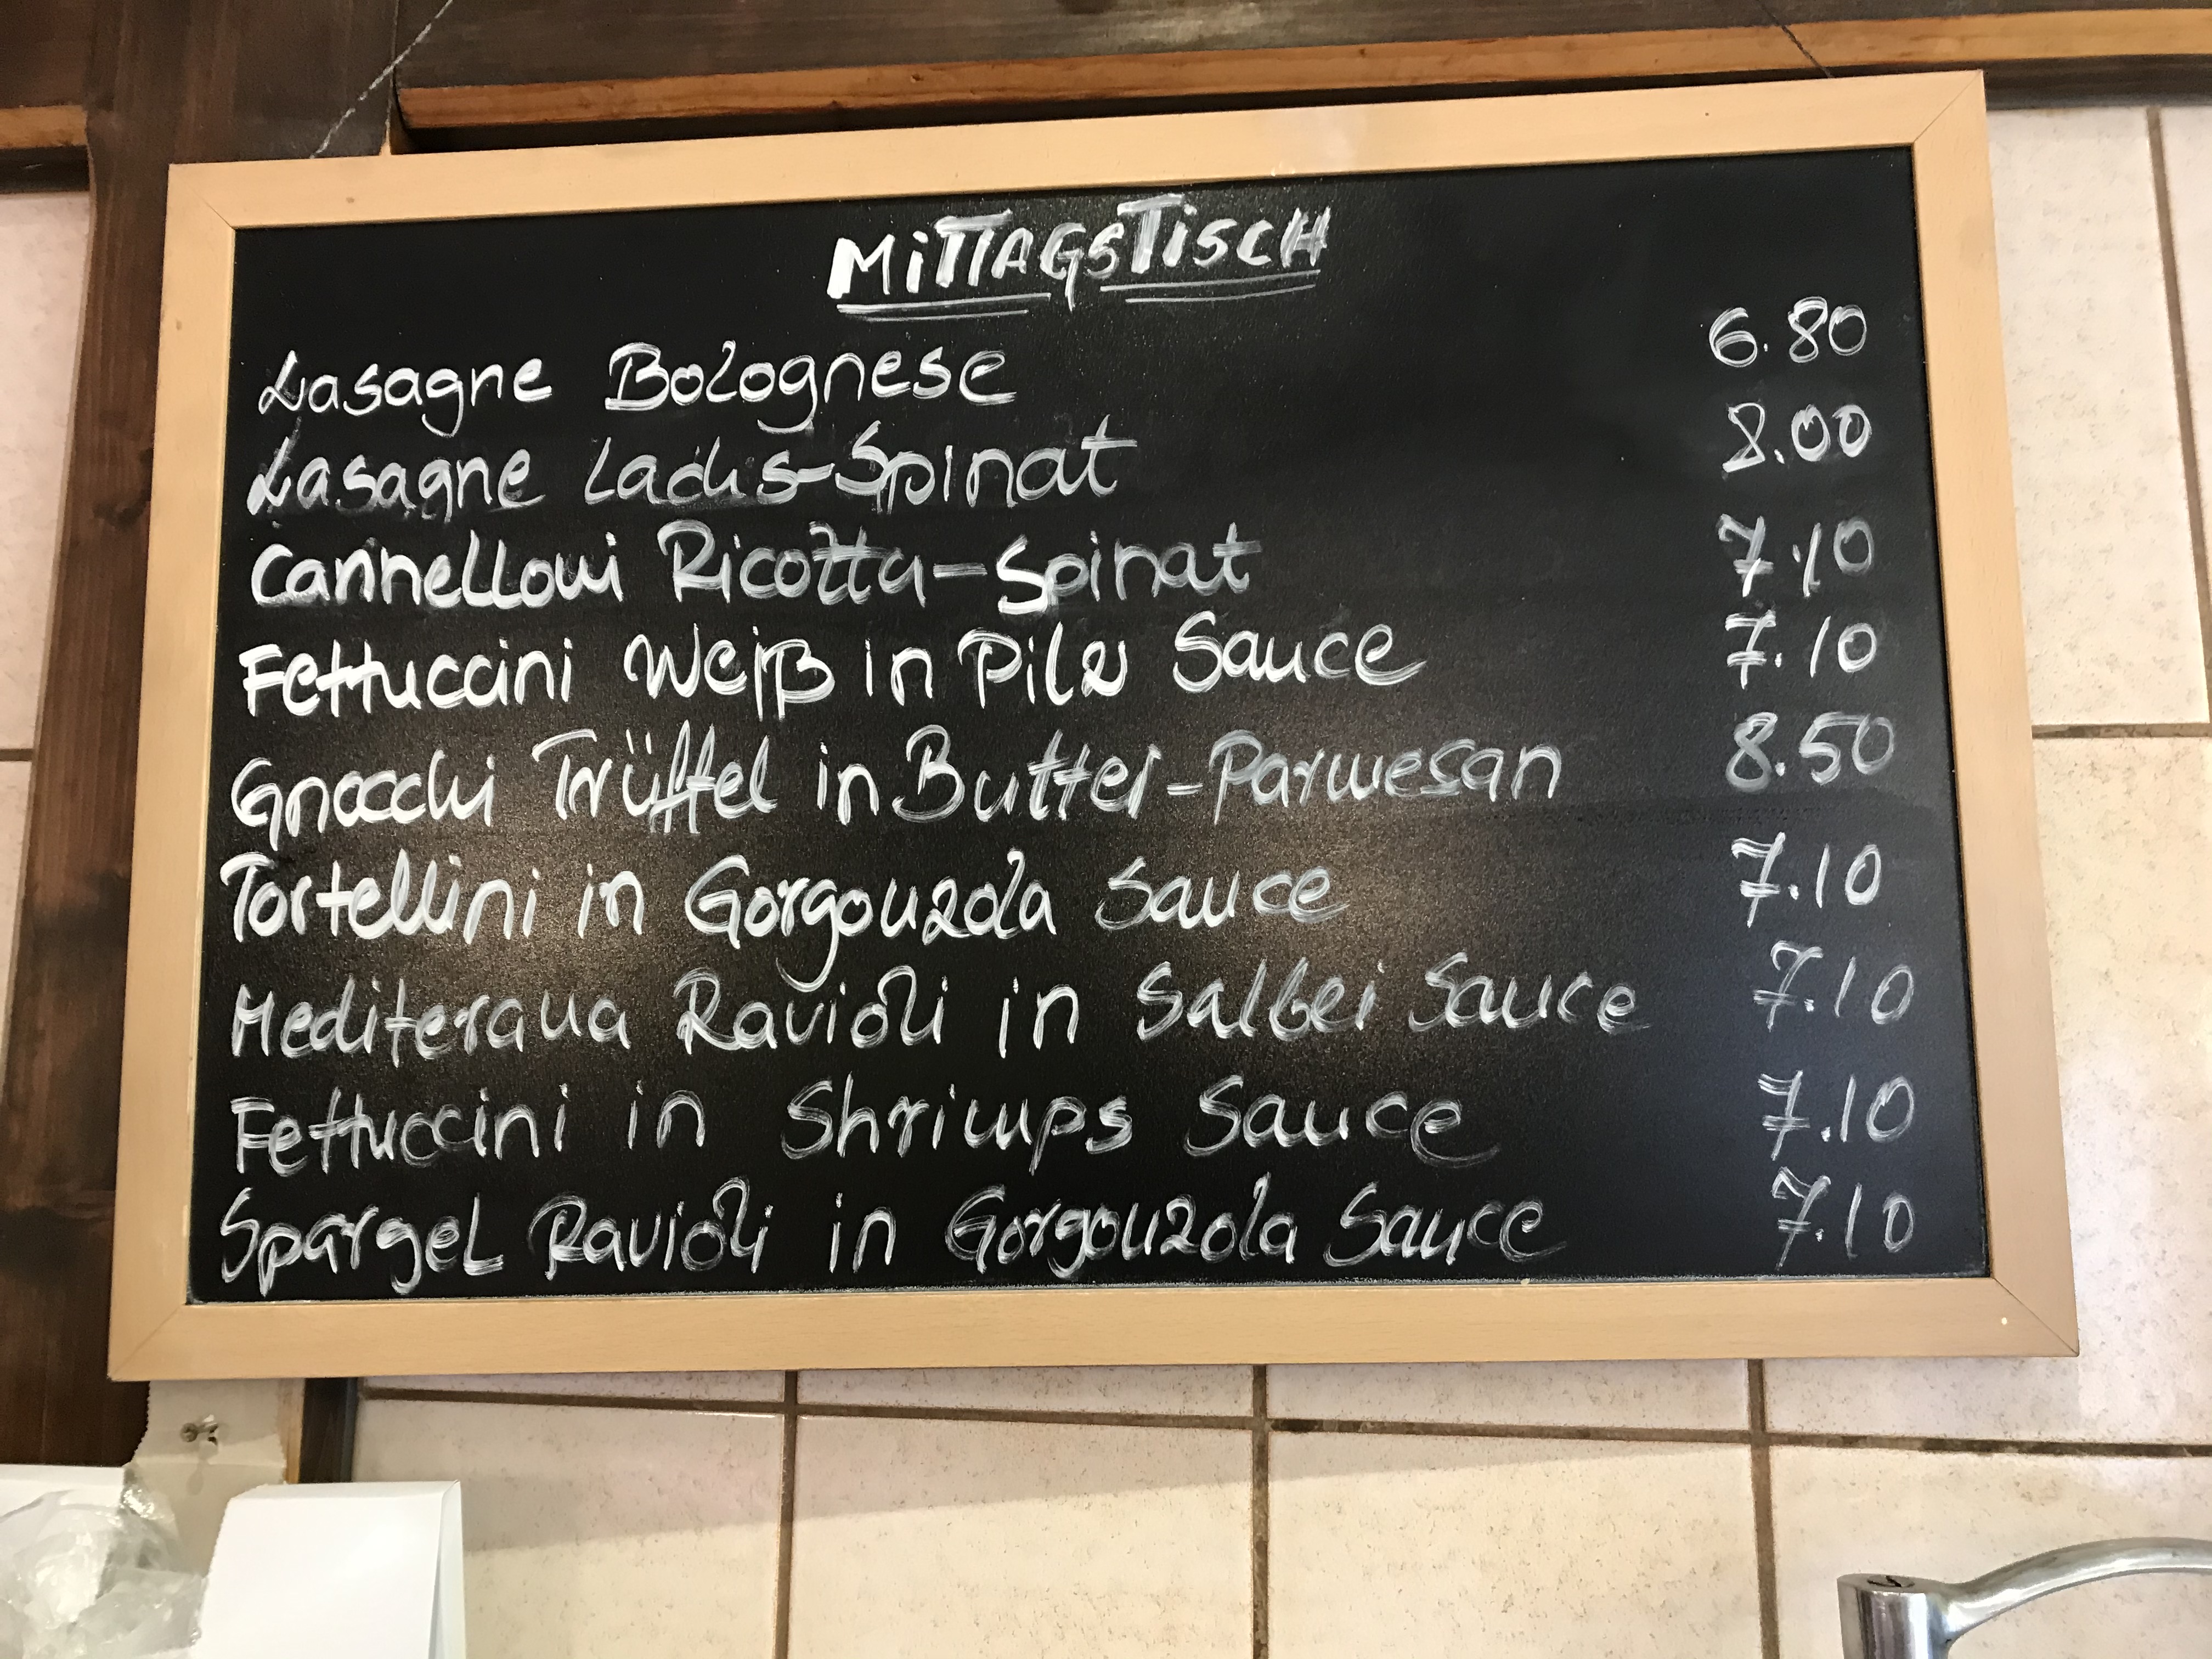 MiTTAGSTiSCH
Lasagne Bolognese 6.80
Lasagne Lachs-Spinat 8.00
Cannelloni Ricotta-Spinat 7.10
Fettuccini Weiß in Pilz Sauce 7.10
Gnocchi Trüffel in Butter-Parmesan 8.50
Tortellini in Gorgonzola Sauce 7.10
Mediterana Ravioli in Salbei Sauce 7.10
Fettuccini in Shrimps Sauce 7.10
Spargel Ravioli in Gorgonzola Sauce 7.10